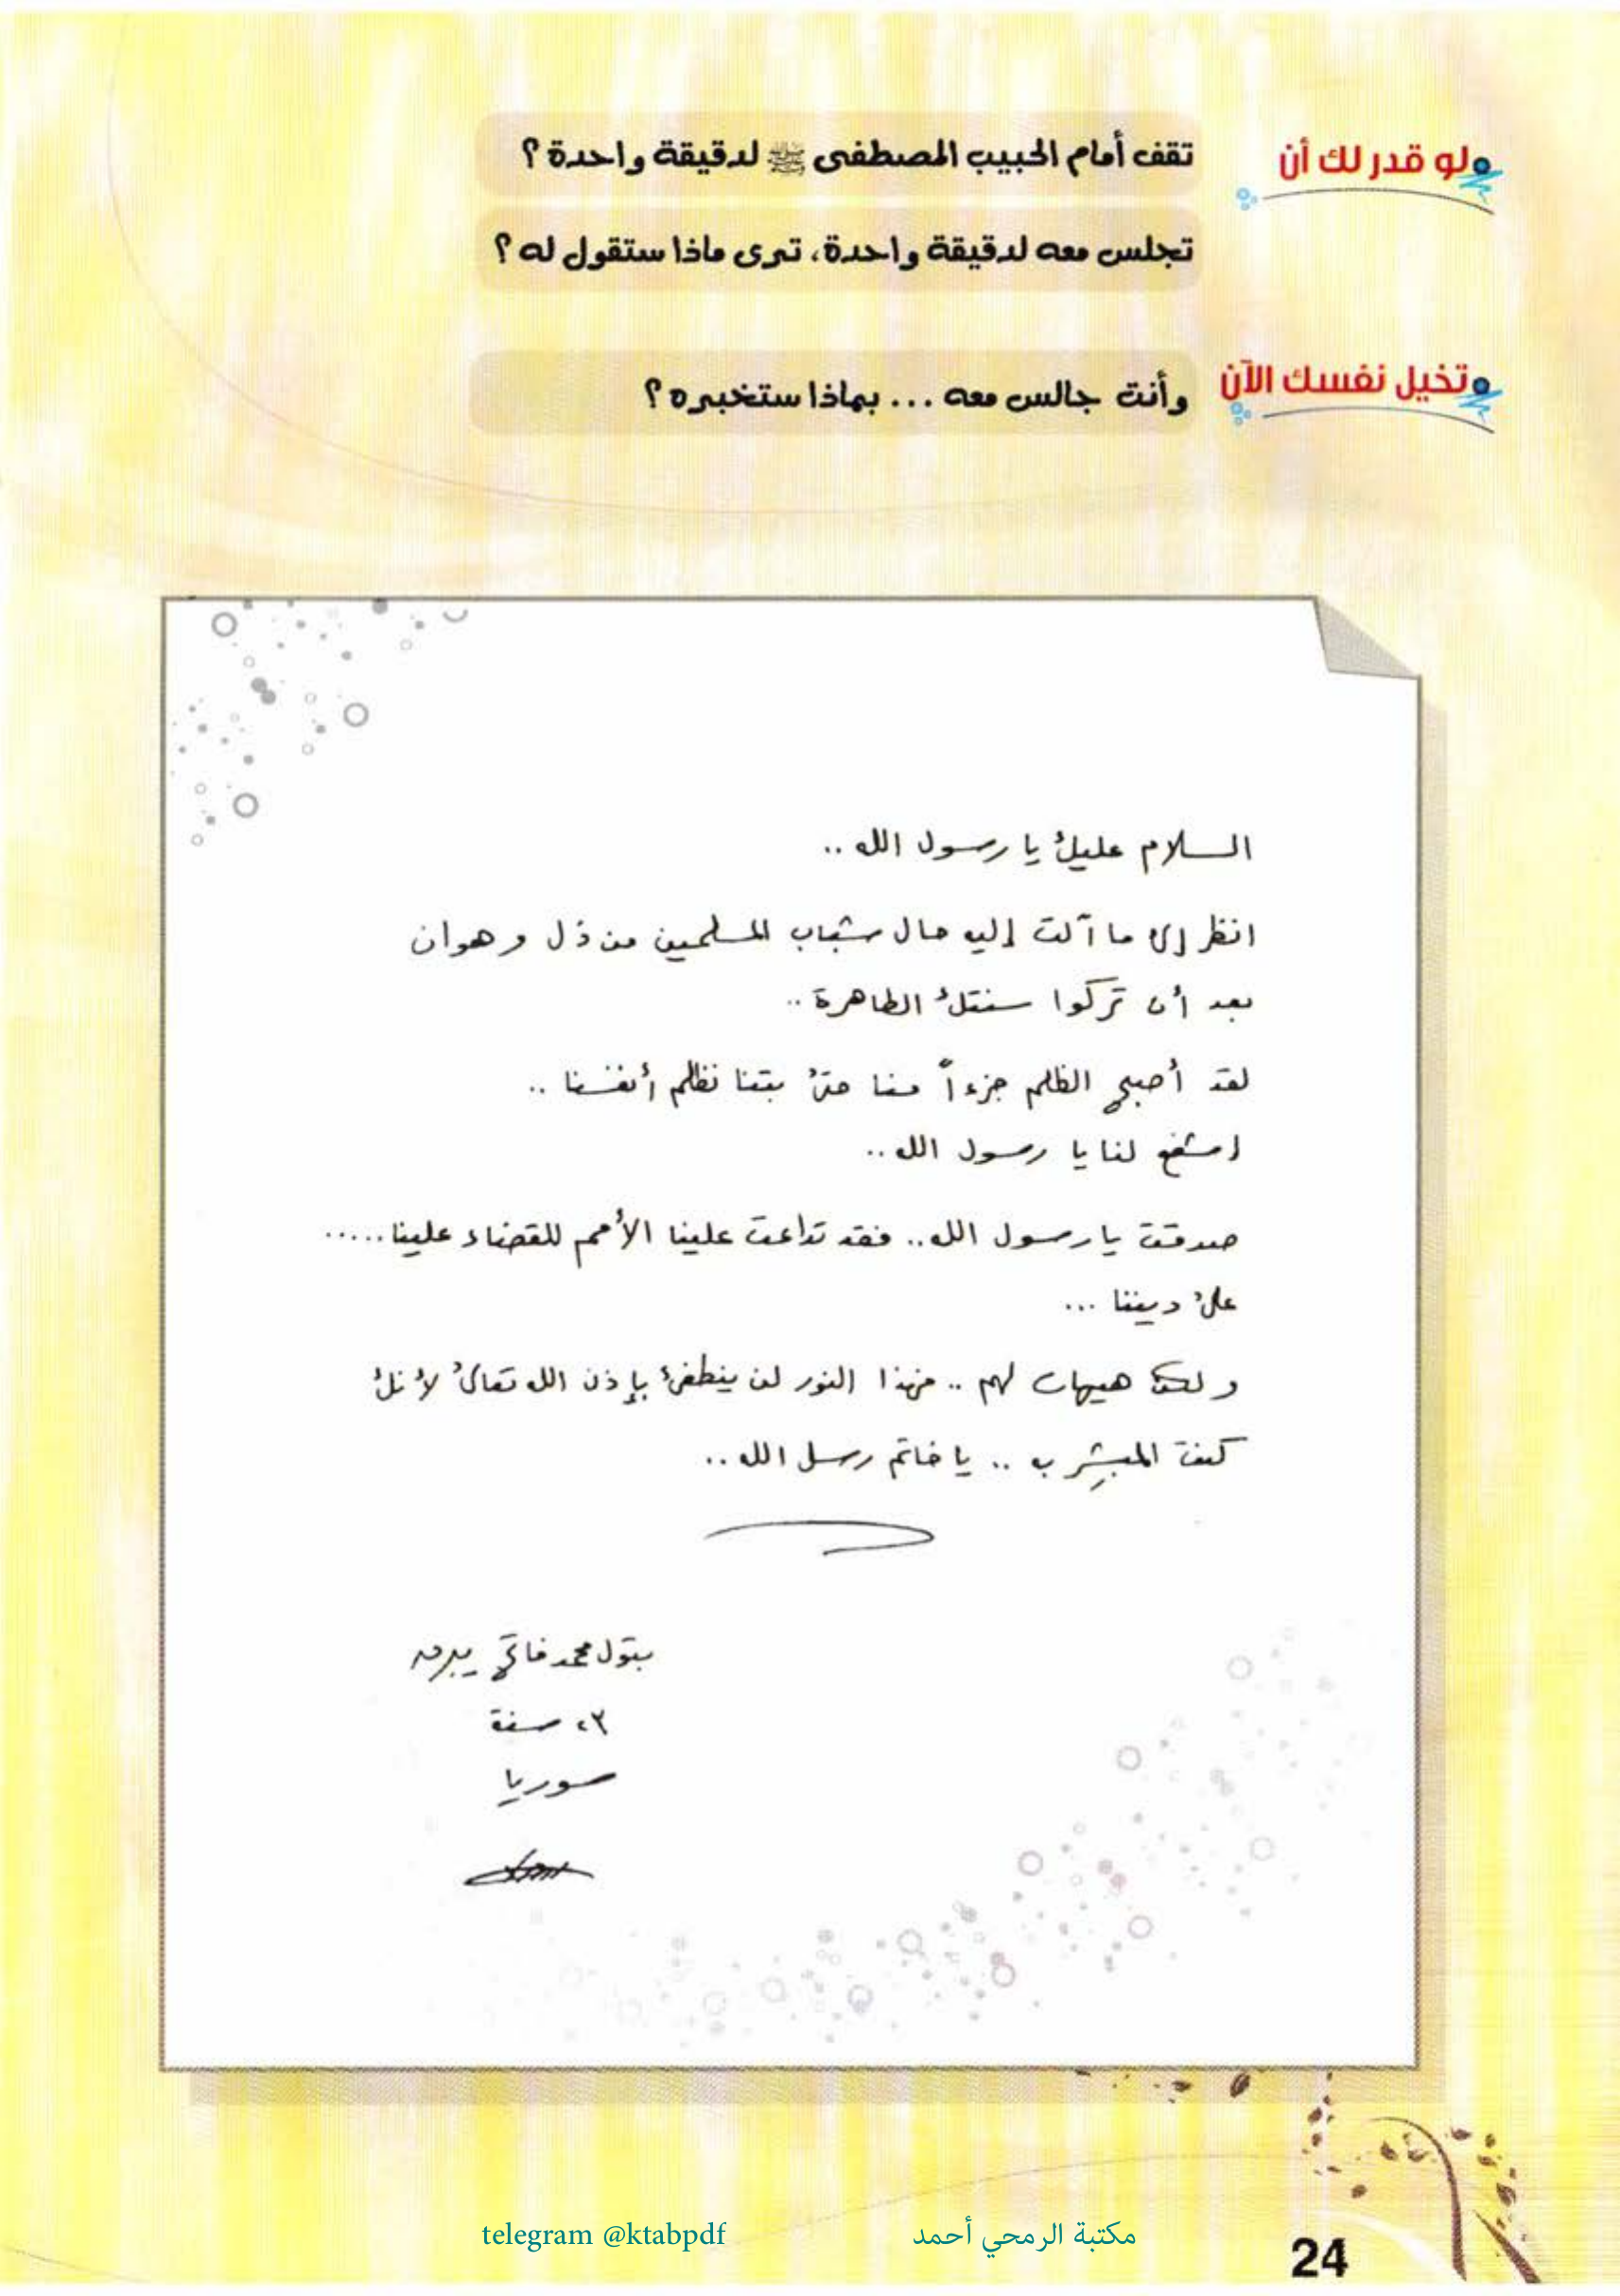 لو قدر لك أن
تقف أمام الحبيب المصطفى ﷺ لدقيقة واحدة ؟
تجلس معه لدقيقة واحدة، ترى ماذا ستقول له ؟
وتخيل نفسك الآن
وأنت جالس معه ... بماذا ستخبره ؟
السلام عليك يا رسول الله ..
انظر إلى ما آلت إليه حال شباب المسلمين من ذل و هوان
بعد أن تركوا سنتك الطاهرة ..
لقد أصبح الظلم جزءاً منا حتى بتنا نظلم أنفسنا ..
اشفع لنا يا رسول الله ..
صدقت يا رسول الله .. فقد تداعت علينا الأمم للقضاء علينا .....
على ديننا ...
و لكن هيهات لهم .. فهذا النور لن ينطفئ بإذن الله تعالى لأنك
كنت المبشر به .. يا خاتم رسل الله ..
بتول محمد فاتح
٢٣ سنة
سوريا
telegram @ktabpdf مكتبة الرمحي أحمد
24